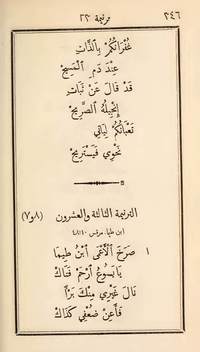 ٢٤٦ ترنيمة ٢٢
غُفْرَانُكُمْ بِالذَّاتِ
عِنْدَ دَمِ الْمَسِيحْ
قَدْ قَالَ عَنْ ثَبَاتِ
إِنْجِيلُهُ الصَّرِيحْ
تَعْبَانُكُمْ لِيَاتِي
نَحْوِي فَيَسْتَرِيحْ
الترنيمة الثالثة والعشرون (٨و٧)
ابن طيما مرقس
١ صَرَخَ الْأَعْمَى ابْنُ طِيمَا
يَا يَسُوعُ ارْحَمْ فَتَاكْ
نَالَ غَيْرِي مِنْكَ بَرًّا
فَأَعِنْ ضُعْفِي كَذَاكْ